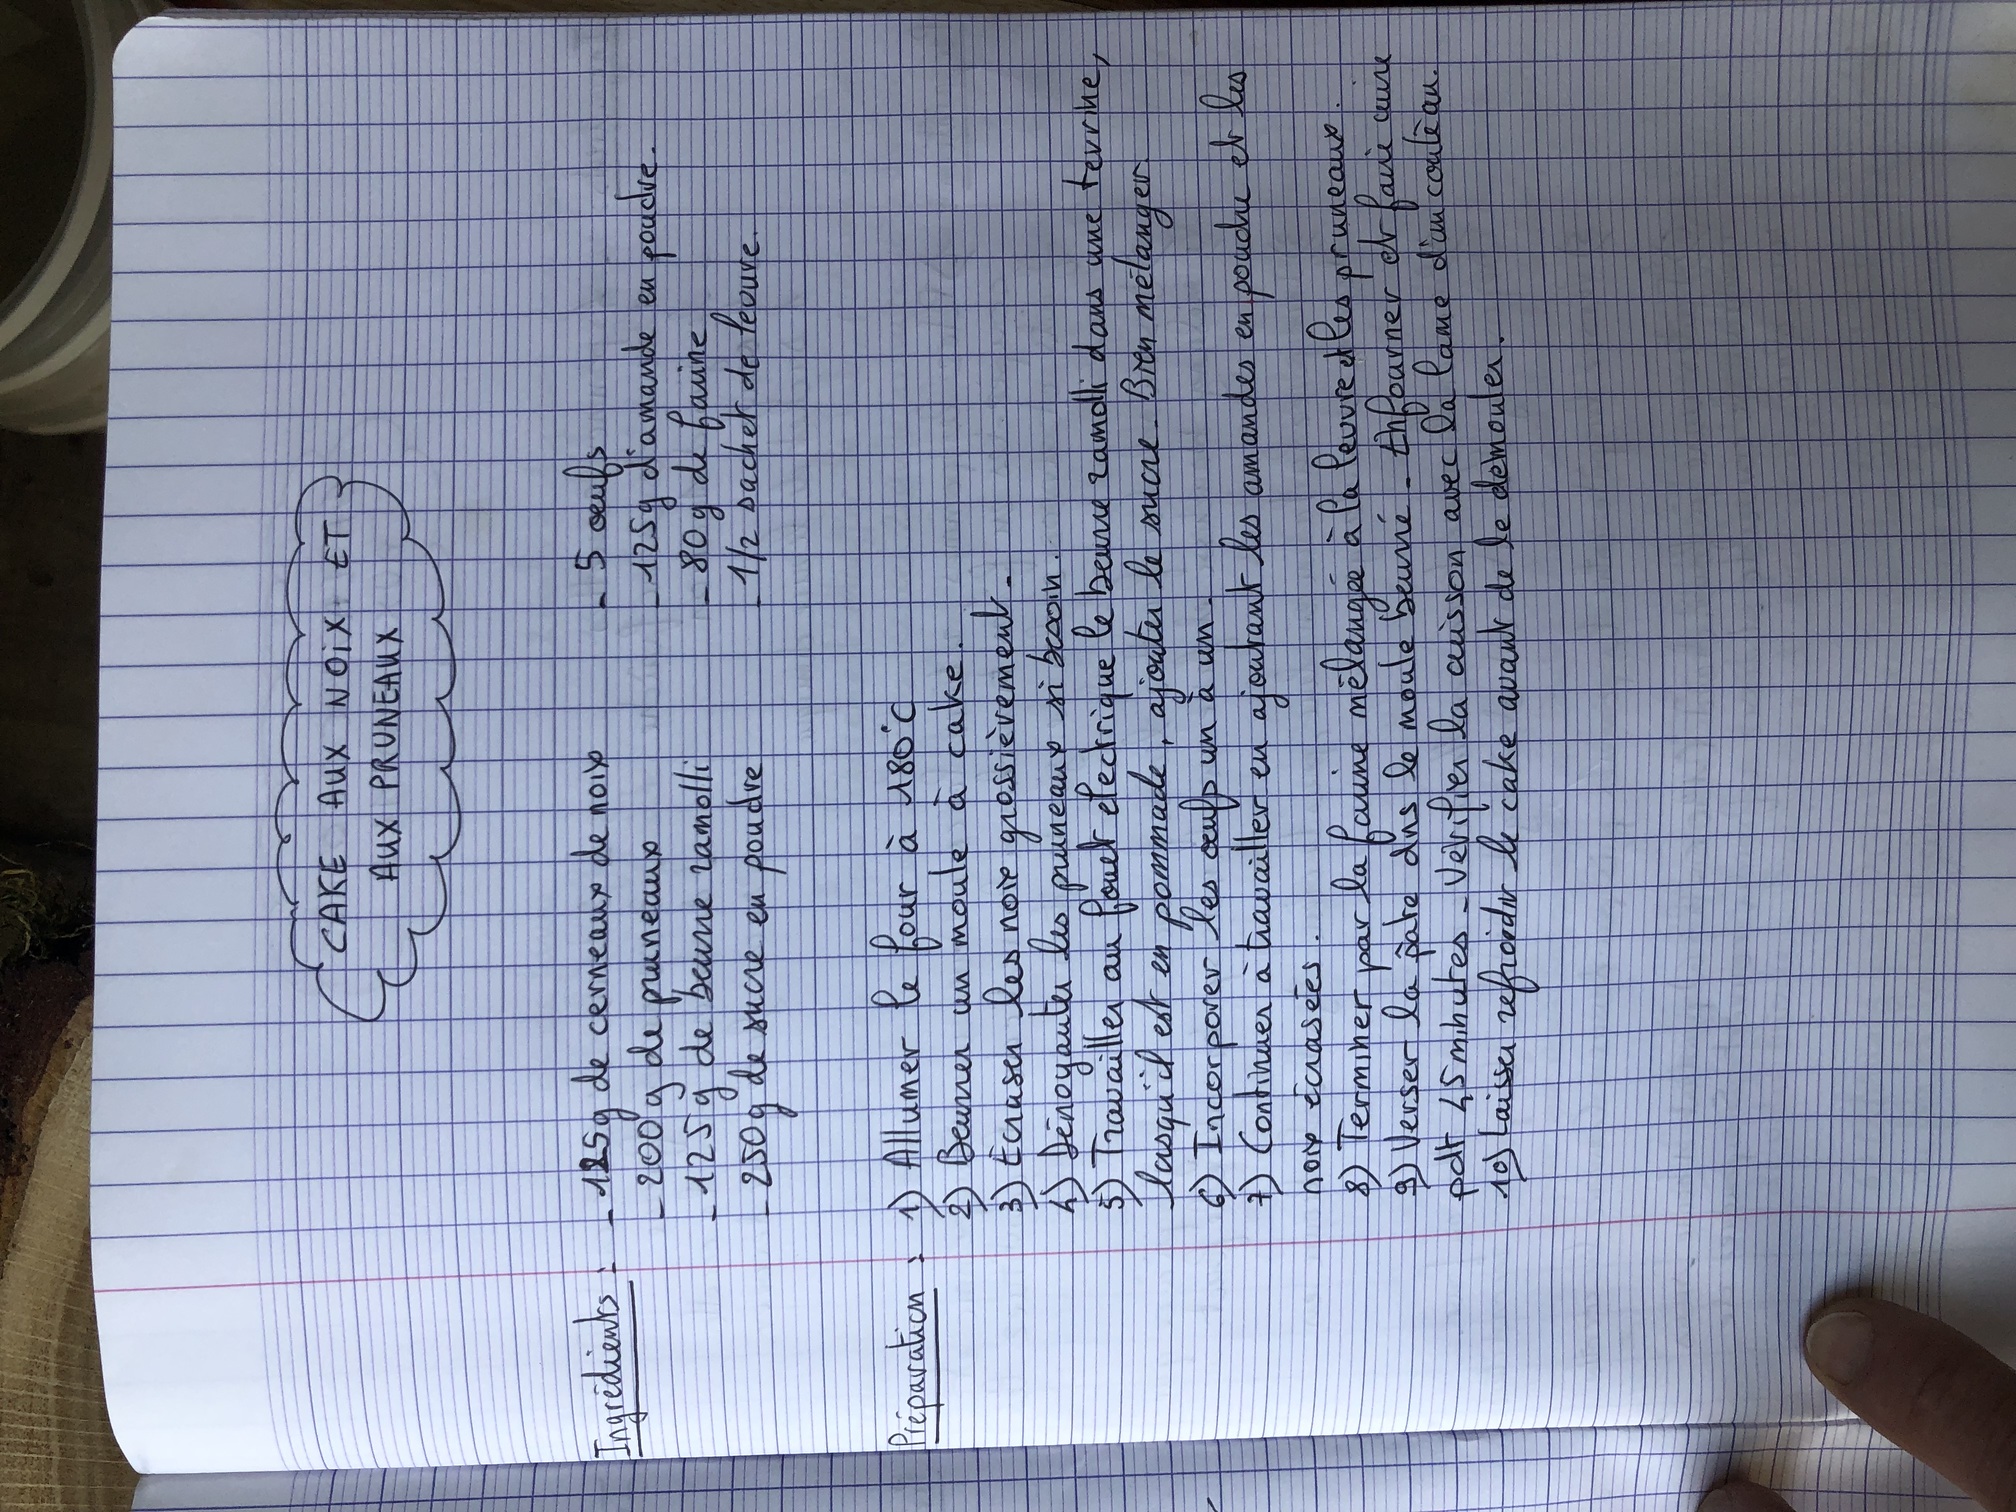 CAKE AUX NOIX ET
AUX PRUNEAUX
Ingrédients : - 125g de cerneaux de noix - 5 oeufs
- 200g de pruneaux - 125g d'amande en poudre.
- 125g de beurre ramolli - 80g de farine
- 250g de sucre en poudre - 1/2 sachet de levure.
Préparation : 1) Allumer le four à 180°C
2) Beurrer un moule à cake.
3) Écraser les noix grossièrement.
4) Dénoyauter les pruneaux si besoin.
5) Travailler au fouet électrique le beurre ramolli dans une terrine,
lorsqu'il est en pommade, ajouter le sucre. Bien mélanger
6) Incorporer les oeufs un à un.
7) Continuer à travailler en ajoutant les amandes en poudre et les
noix écrasées.
8) Terminer par la farine mélangée à la levure et les pruneaux.
9) Verser la pâte dns le moule beurré - Enfourner et faire cuire
pdt 45 minutes - Vérifier la cuisson avec la lame d'un couteau.
10) Laisser refroidir le cake avant de le démouler.